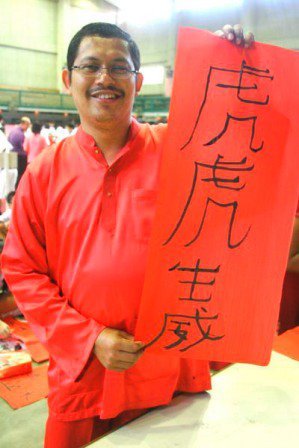 虎
虎
生
威